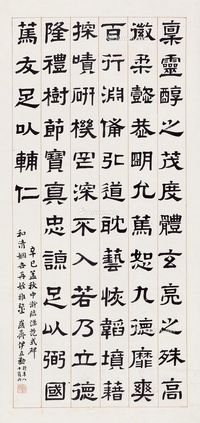 稟靈醇之茂度體玄亮之殊高
徽柔懿恭明允篤恕九德靡爽
百行淵備弘道耽藝恢韞墳籍
探嘖研機罔深不入若乃立德
隆禮樹節寶真忠諒足以弼國
篤友足以輔仁
辛巳孟秋中澣臨漢范式碑
和清姻吾再姪雅鑒 伊立勳